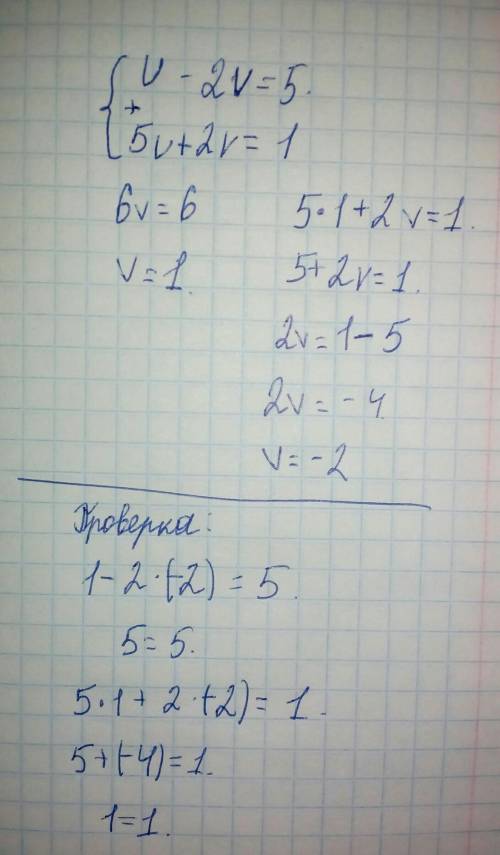 U - 2V = 5.
+
5U + 2V = 1
6V = 6
V = 1.
5 · 1 + 2V = 1.
5 + 2V = 1.
2V = 1 - 5
2V = -4
V = -2
Проверка:
1 - 2 · (-2) = 5.
5 = 5.
5 · 1 + 2 · (-2) = 1.
5 + (-4) = 1.
1 = 1.